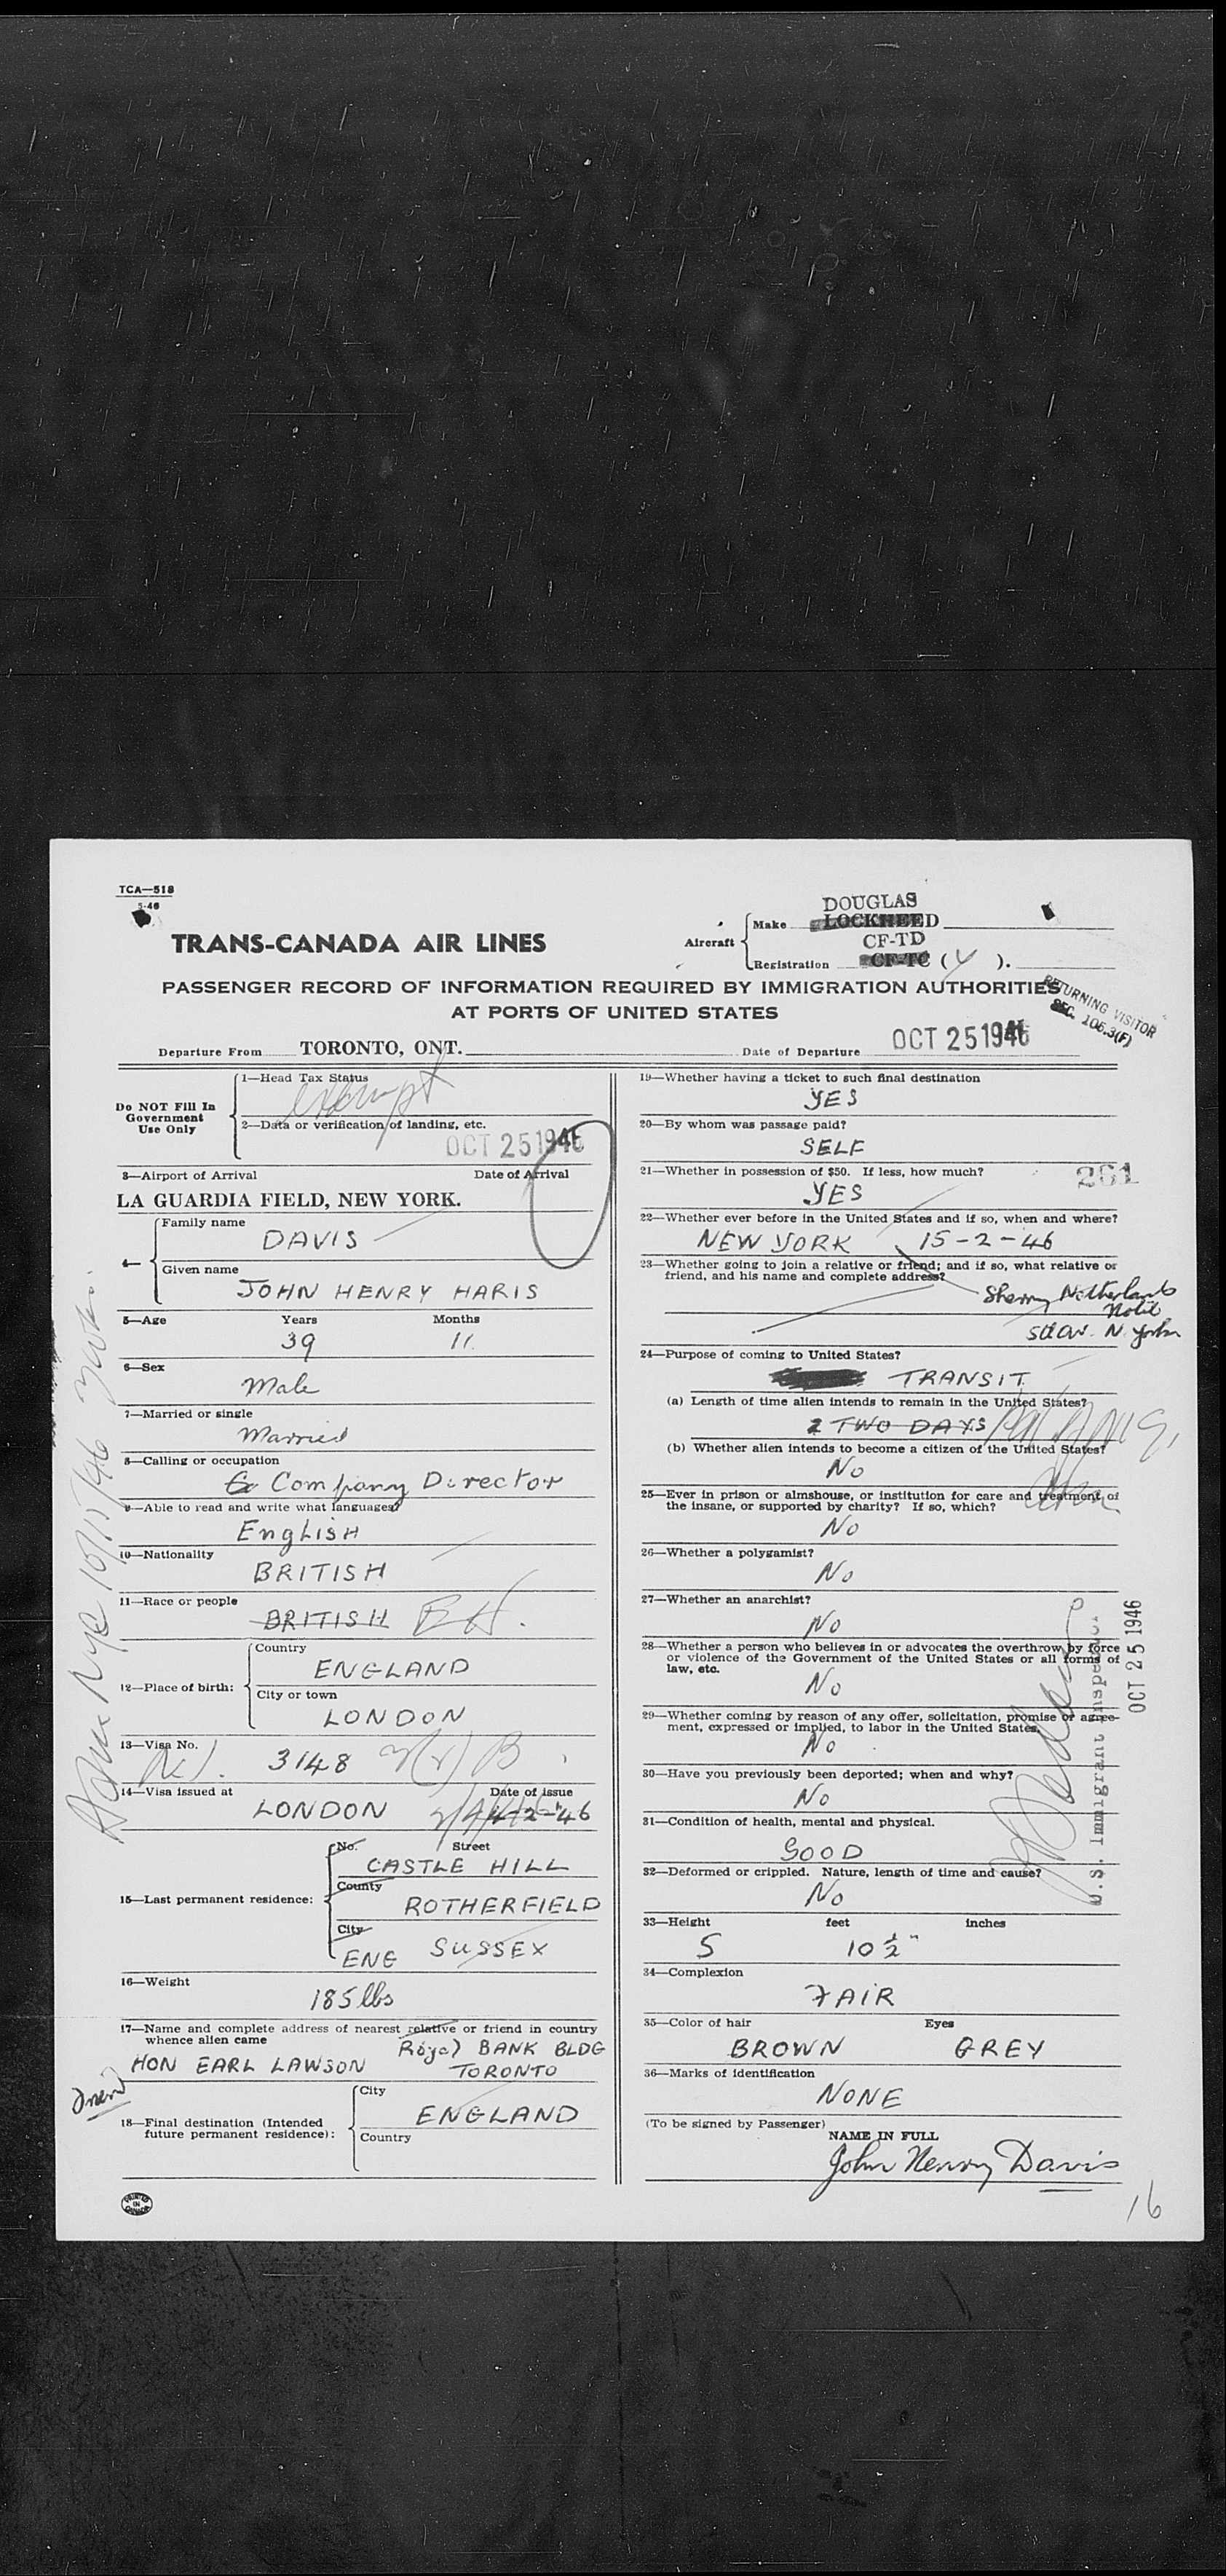 TCA—518
5-46
DOUGLAS
Aircraft
Make LOCKHEED
CF-TD
Registration CF-TC (Y).
TRANS-CANADA AIR LINES
PASSENGER RECORD OF INFORMATION REQUIRED BY IMMIGRATION AUTHORITIES
AT PORTS OF UNITED STATES
RETURNING VISITOR
SEC. 106.3(F)
Departure From TORONTO, ONT. Date of Departure OCT 25 1946
Do NOT Fill In
Government
Use Only
1—Head Tax Status
exempt
2—Data or verification of landing, etc.
OCT 25 1946
3—Airport of Arrival Date of Arrival
LA GUARDIA FIELD, NEW YORK.
4—
Family name
DAVIS
Given name
JOHN HENRY HARIS
5—Age Years Months
39 11
6—Sex
Male
7—Married or single
Married
8—Calling or occupation
Company Director
9—Able to read and write what languages?
English
10—Nationality
BRITISH
11—Race or people
BRITISH
12—Place of birth:
Country
ENGLAND
City or town
LONDON
13—Visa No.
3148
14—Visa issued at Date of issue
LONDON 4-2-46
15—Last permanent residence:
No. Street
CASTLE HILL
County
ROTHERFIELD
City
ENG SUSSEX
16—Weight
185 lbs
17—Name and complete address of nearest relative or friend in country
whence alien came
HON EARL LAWSON Royal BANK BLDG
TORONTO
friend
18—Final destination (Intended
future permanent residence):
City
ENGLAND
Country
PRINTED
IN
CANADA
19—Whether having a ticket to such final destination
YES
20—By whom was passage paid?
SELF
21—Whether in possession of $50. If less, how much?
YES
261
22—Whether ever before in the United States and if so, when and where?
NEW YORK 15-2-46
23—Whether going to join a relative or friend; and if so, what relative or
friend, and his name and complete address?
Sherry Netherlands
Hotel
N. York
24—Purpose of coming to United States?
TRANSIT
(a) Length of time alien intends to remain in the United States?
2 TWO DAYS
(b) Whether alien intends to become a citizen of the United States?
No
25—Ever in prison or almshouse, or institution for care and treatment of
the insane, or supported by charity? If so, which?
No
26—Whether a polygamist?
No
27—Whether an anarchist?
No
28—Whether a person who believes in or advocates the overthrow by force
or violence of the Government of the United States or all forms of
law, etc.
No
29—Whether coming by reason of any offer, solicitation, promise or agree-
ment, expressed or implied, to labor in the United States.
No
30—Have you previously been deported; when and why?
No
31—Condition of health, mental and physical.
GOOD
32—Deformed or crippled. Nature, length of time and cause?
No
33—Height feet inches
5 10 ½"
34—Complexion
FAIR
35—Color of hair Eyes
BROWN GREY
36—Marks of identification
NONE
(To be signed by Passenger)
NAME IN FULL
John Henry Davis
16
U.S. Immigrant Inspector
OCT 25 1946